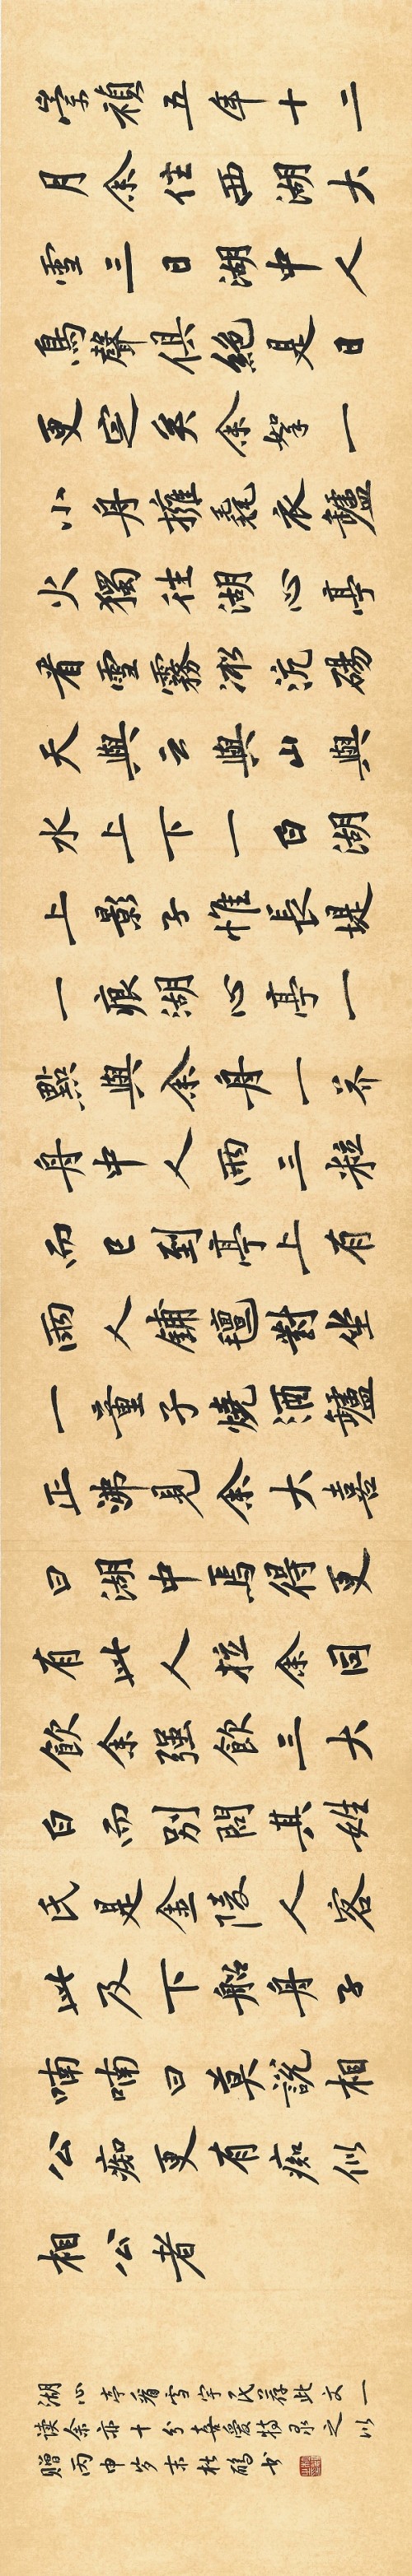 崇禎五年十二
月余住西湖大
雪三日湖中人
鳥聲俱絕是日
更定矣余拏一
小舟擁毳衣鑪
火獨往湖心亭
看雪霧凇沆碭
天與云與山與
水上下一白湖
上影子惟長堤
一痕湖心亭一
點與余舟一芥
舟中人兩三粒
而已到亭上有
兩人鋪氈對坐
一童子燒酒鑪
正沸見余大喜
曰湖中焉得更
有此人拉余同
飲余强飲三大
白而別問其姓
氏是金陵人客
此及下船舟子
喃喃曰莫說相
公痴更有痴似
相公者
湖心亭看雪宇民荐此文一
读余亦十分喜爱特录之以
赠丙申岁末杜鹏书